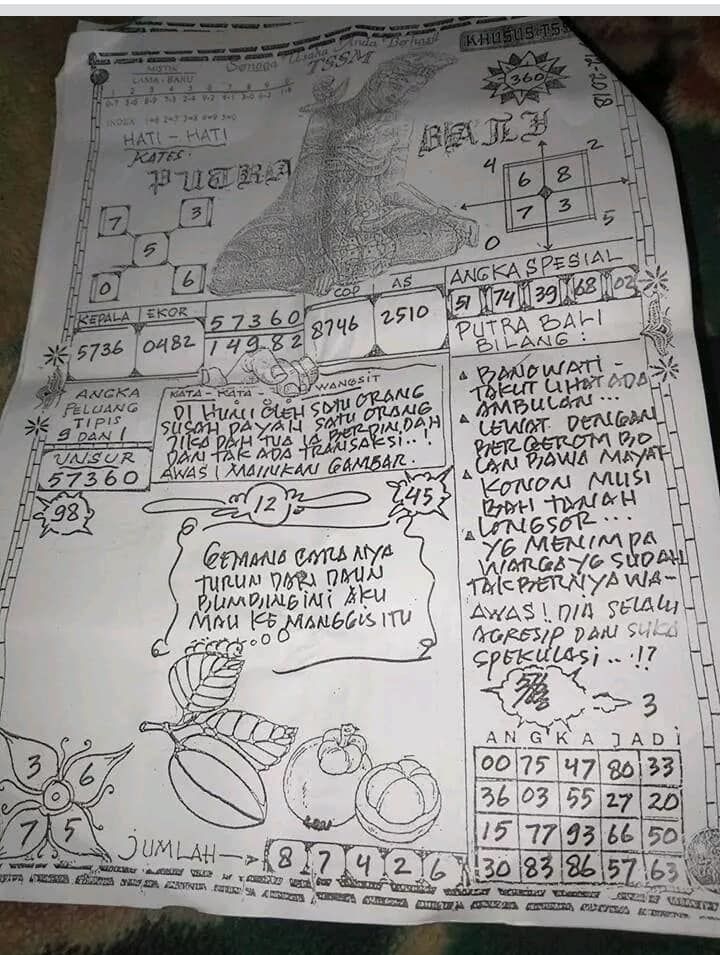 Semoga Usaha Anda Berhasil
TSSM
KHUSUS TSS
2018
MISTIK
LAMA - BARU
1 2 3 4 5 6 7 8 9 0
INDEX
HATI - HATI
KATES.
PUTRA
BALI
360
7 3
5
0 6
4 2
6 8
7 3
0 5
KEPALA EKOR
5736 0482
57360
14982
COP AS
8746 2510
ANGKA SPESIAL
51 74 39 68 02
PUTRA BALI
BILANG :
ANGKA
PELUANG
TIPIS
9 DAN 1
UNSUR
57360
KATA - KATA - WANGSIT
DI HUNI OLEH SATU ORANG
SUSAH PAYAH SATU ORANG
JIKA DAH TUA IA BERPINDAH
DAN TAK ADA TRANSAKSI..!
AWAS! MAINKAN GAMBAR.
BANOWATI -
TAKUT LIHAT ADA
AMBULAN...
LEWAT DENGAN
BERGEROMBO
LAN BAWA MAYAT
KONON MUSI
BAH TANAH
LONGSOR...
YG MENIMPA
WARGA YG SUDAH
TAK BERNYAWA-
AWAS! DIA SELALU
AGRESIP DAN SUKA
SPEKULASI...!?
98
12
45
GEMANA CARANYA
TURUN DARI DAUN
BUMBING INI AKU
MAU KE MANGGIS ITU
3
ANGKA JADI
00 75 47 80 33
36 03 55 27 20
15 77 93 66 50
30 83 86 57 63
3 6
7 5
JUMLAH
8 7 4 2 6